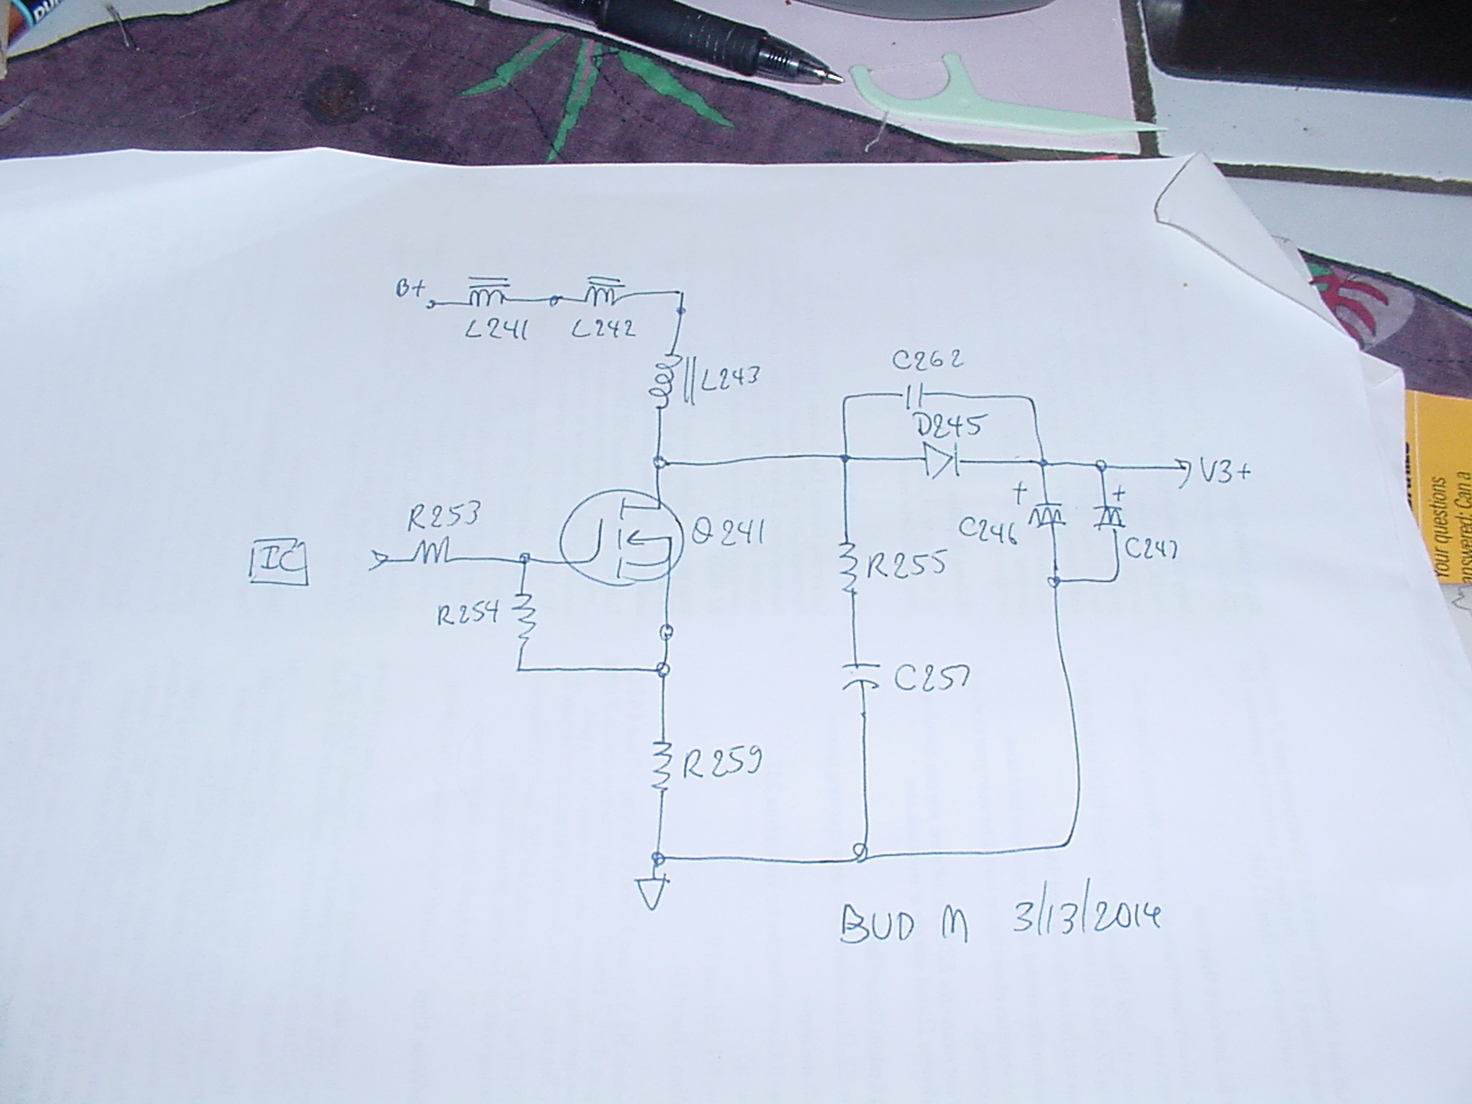 DUR
B+
L241
L242
L243
C262
D245
V3+
R253
Q241
C246
C247
IC
R254
R255
C257
R259
BUD M 3/13/2014
Your questions
answered: Can a